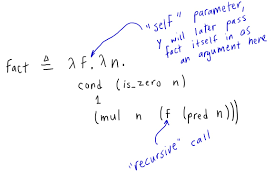 "self" parameter,
Y will later pass
fact itself in as
an argument here
fact ≜ λf. λn.
cond (is_zero n)
1
(mul n (f (pred n)))
"recursive" call